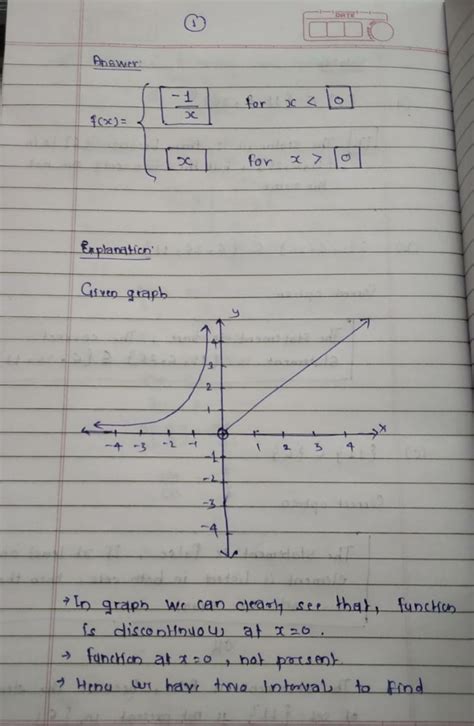 1
DATE
Answer:
f(x) = { -1/x for x < 0
x for x > 0
Explanation:
Given graph
y
4
3
2
1
-4 -3 -2 -1 1 2 3 4 x
-1
-2
-3
-4
→ In graph we can clearly see that, function
is discontinuous at x=0.
→ function at x=0, not present
→ Hence we have two interval to find